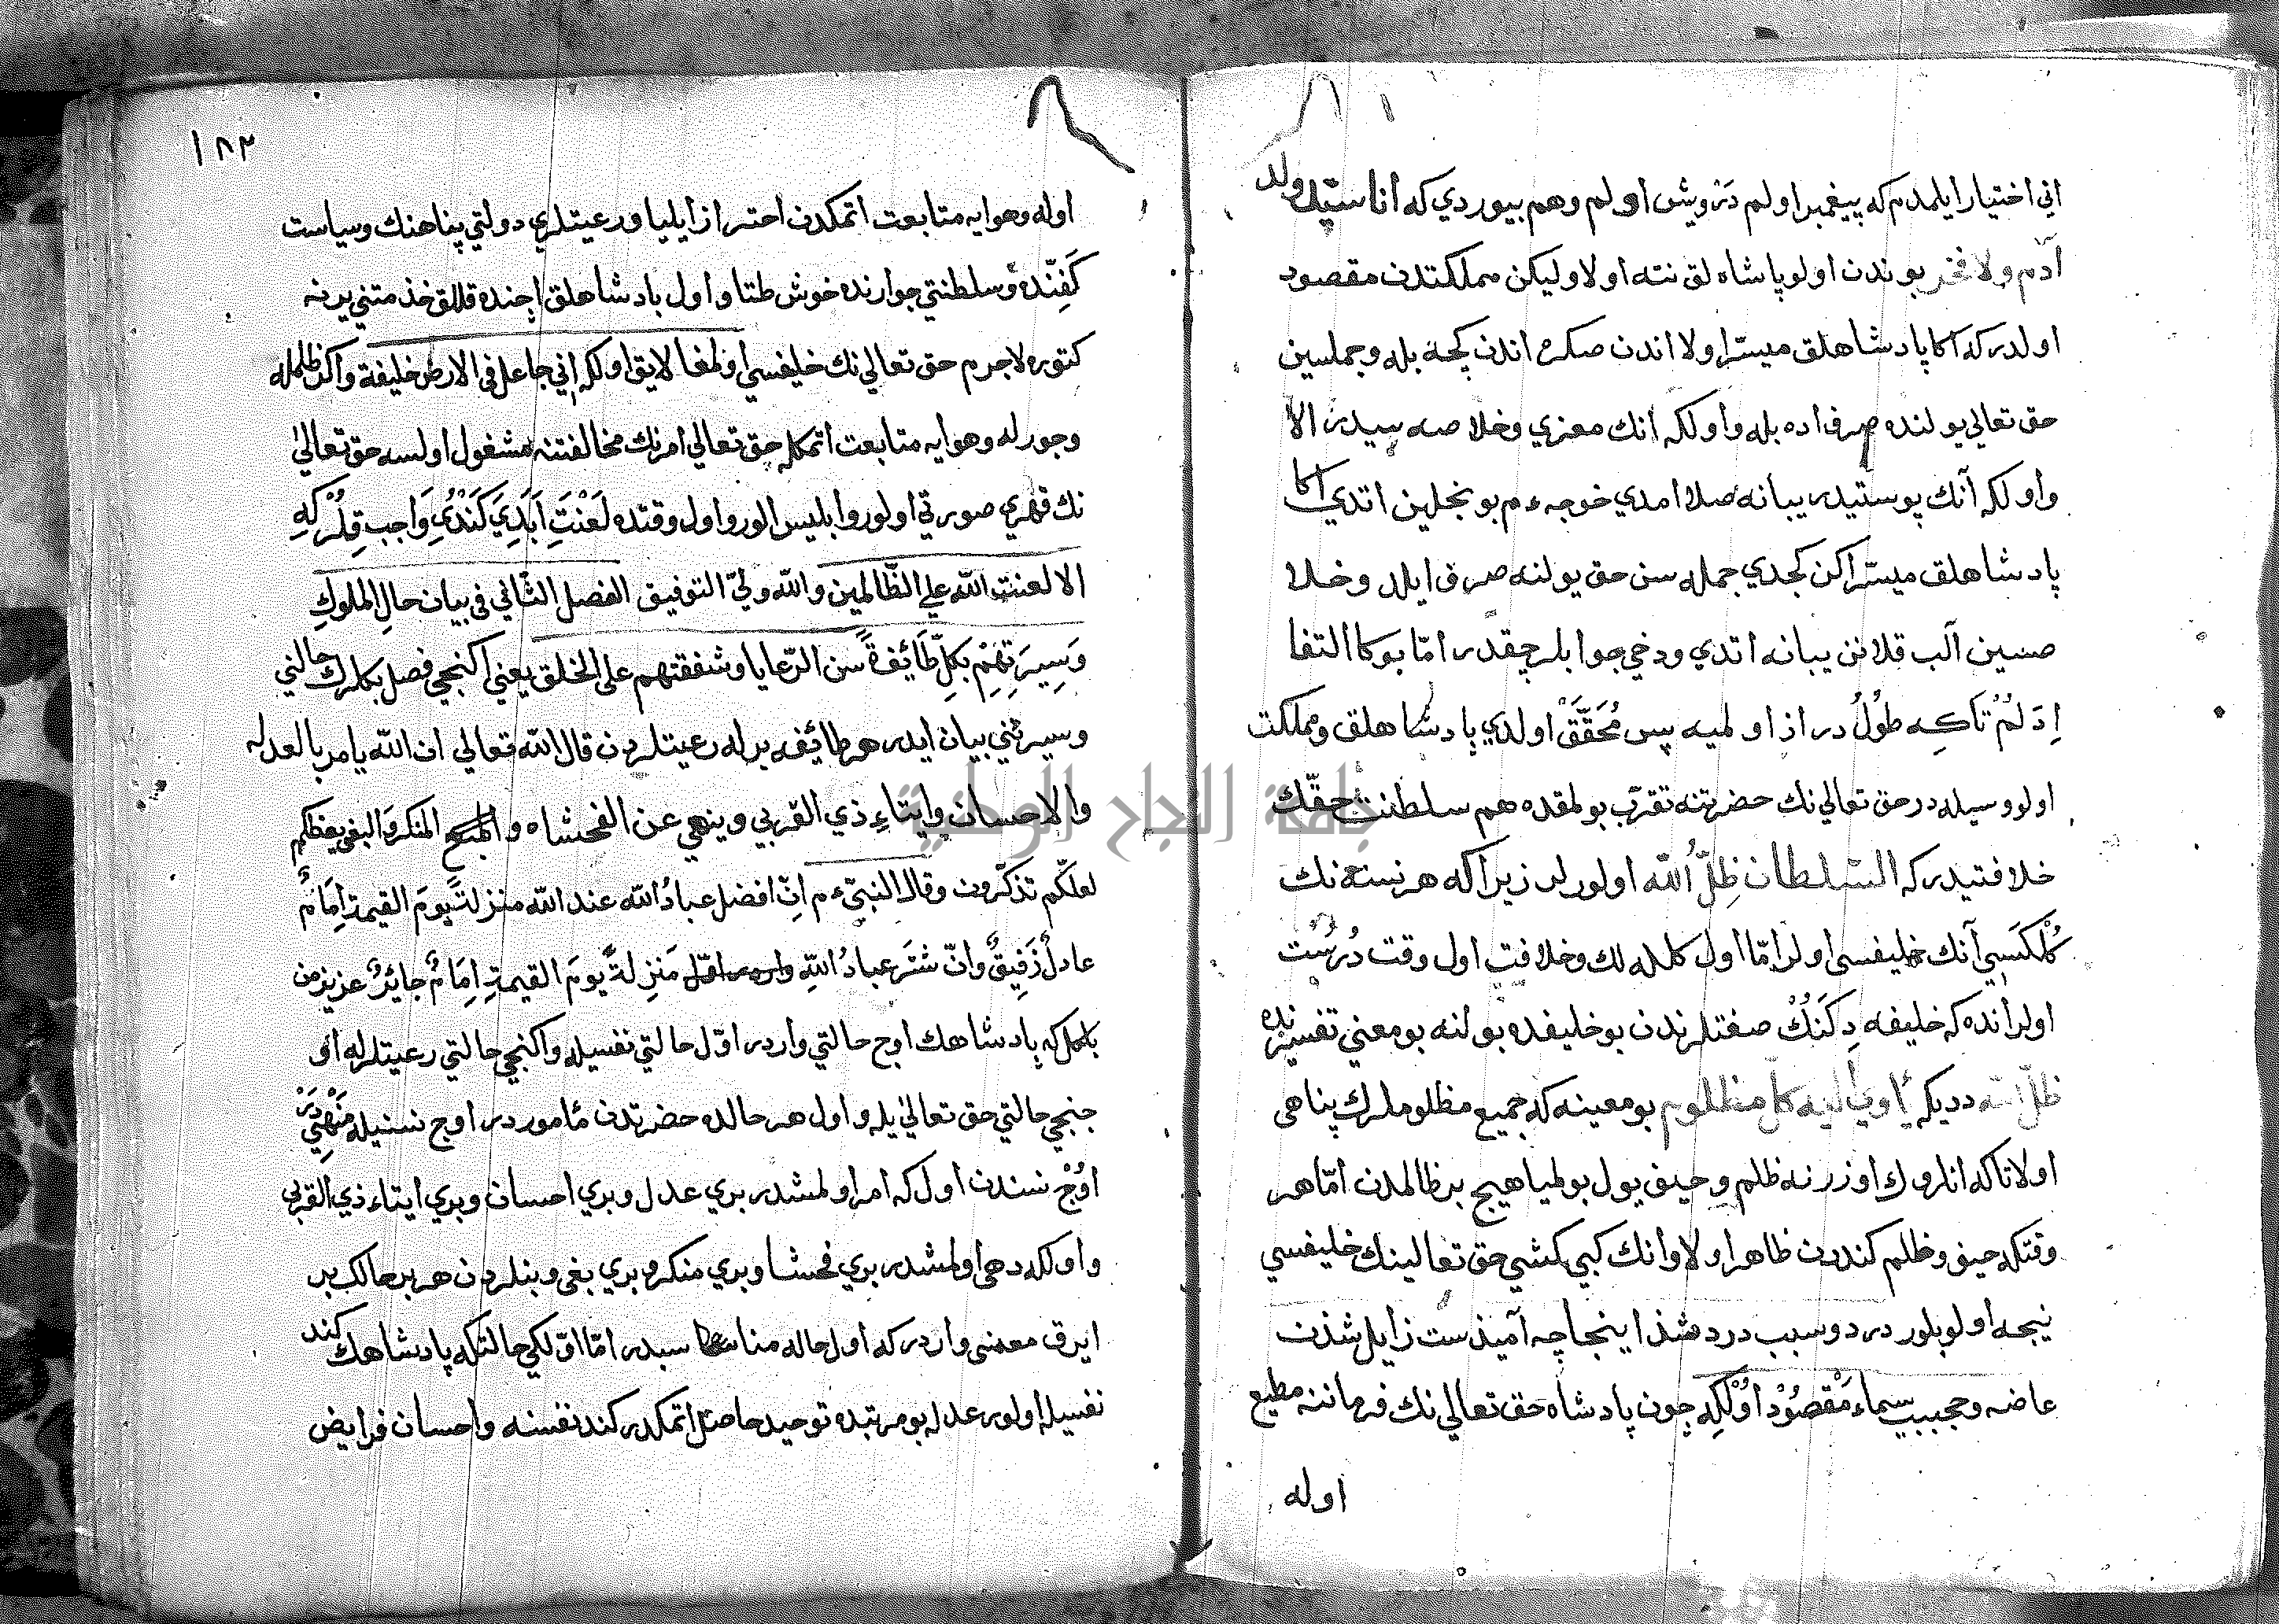 اني اختيار ايلمدم كه پيغمبر اولم درويش اولم وهم بيوردي كه انا سيد ولد
آدم ولا فخر بوندن اولو پاشاه لق نته اولا وليكن مملكتدن مقصود
اولدر كه اكا پادشاهلق ميسّر اولا اندن صكره اندن كچه بله وجملسين
حق تعالي يولنده صرف اده بله واولكه انك مغزي وخلاصه سيدر الا
واولكه آنك پوستيدر يبانه صلا امدي خوجه ءم بونجلين اتدي اكا
پادشاهلق ميسّر اكن كجدي جمله سن حق يولنه صرف ايلدي وخلا
صسين آلب قلانن يبانه اتدي ودخي جوابلر چقدر امّا بوكا التفا
اِدَلُمْ تاكِه طُولُ دراز اولميه پس مُحَقَّقْ اولدي پادشاهلق ومملكت
اولو وسيله در حق تعالي نك حضرتنه تقرّب بولمقده هم سلطنت حقّك
خلافتيدر كه السّلطان ظِلُّ الله اولورلر زيرا كه هر نسنه نك
كُلْكَسِي آنك خليفسي اولر امّا اول كلله لك وخلافت اول وقت دُرُسْت
اولر انده كه خليفه دِكَنُكْ صفتلرندن بو خليفده بولنه بو معني تفسيرنده
ظلّ الله دديكه يأوي اليه كل مظلوم بو معينه كه جميع مظلوملرك پناهى
اولا تاكه انلروك اوزرنه ظلم وحيف يول بولميا هيچ بر ظالمدن امّا هر
وقتكه حيف وظلم كندودن ظاهر اولا وانك كبي كشي حق تعالينك خليفسي
نيجه اولو بلور درد وسبب درد هشذ اينجاچه آميذست زايل شذن
عاضه وحجبيب سيماء مَقْصُوْد اوُلْكِه چون پادشاه حق تعالي نك فرماننه مطيع
اوله
١٨٢
اوله وهوايه متابعت اتمكدن احتراز ايليا ورعيتلري دولتي پناهنك وسياست
كَفِنّده وسلطنتي جوارنده خوش طتا واول بادشاهلق اچنده قللق خذمتني يرنه
كتوره لاجرم حق تعالي نك خليفسي اولمغا لايق اولكه اني جاعل في الارض خليفة واكر ظلمله
وجورله وهوايه متابعت اتمكله حق تعالي امرنك مخالفتنه مشغول اولسه حق تعالي
نك قهري صورتي اولور وابليس الور واول وقتده لَعْنَتِ اَبَدِي كَنْدُيِ وَاجب قِلُرْ كِه
الا لعنت الله علي الظّالمين والله وليّ التوفيق الفصل الثّاني في بيان حالِ الملوكِ
وَسِيرَتِهِمْ بكلِّ طَائفةً سن الرّعايا وشفقتهم علي الخلق يعني اكنجي فصل بكلرك حالني
وسيرتني بيان ايدر هر طائفه برله رعيتلردن قال الله تعالي ان الله يامر بالعدل
والاحسان وايتاءِ ذي القربي وينهي عن الفحشاه و المنكر والبغى يعظكم
لعلّكم تذكّرون وقال النبيّ ءم انّ افضل عبادُ الله عند الله منزلتً يومَ القيمةِ اِمَامٌ
عادلٌ رَفِيقٌ وانّ شتَر عبادُ اللهِ مَنزِلةً يومَ القيمةِ اِمَامٌ جائرٌ عزيز من
بلكل كه پادشاهك اوچ حالتي واردر اوّل حالتي نفسيله واكنجي حالتي رعيتلرله او
جنجي حالتي حق تعالي يله واول هر حالده حضرتدن مأموردر اوچ نسنيله مَنْهِيّدَرْ
اوُچْ نسندن اول كه امر اولمشدر بري عدل وبري احسان وبري ايتاء ذي القربي
واولكه دهى اولمشدر بري فحشا وبري منكر وبري بغى وبنلردن هر بر حالك بر
ايرق معنىى واردر كه اول حاله مناسبدر امّا اوّلكي حالتكه پادشاهك كند
نفسيله اولور عدل بو مرتبده توحيد حاصل اتمكدر كند نفسنه واحسان فرايض